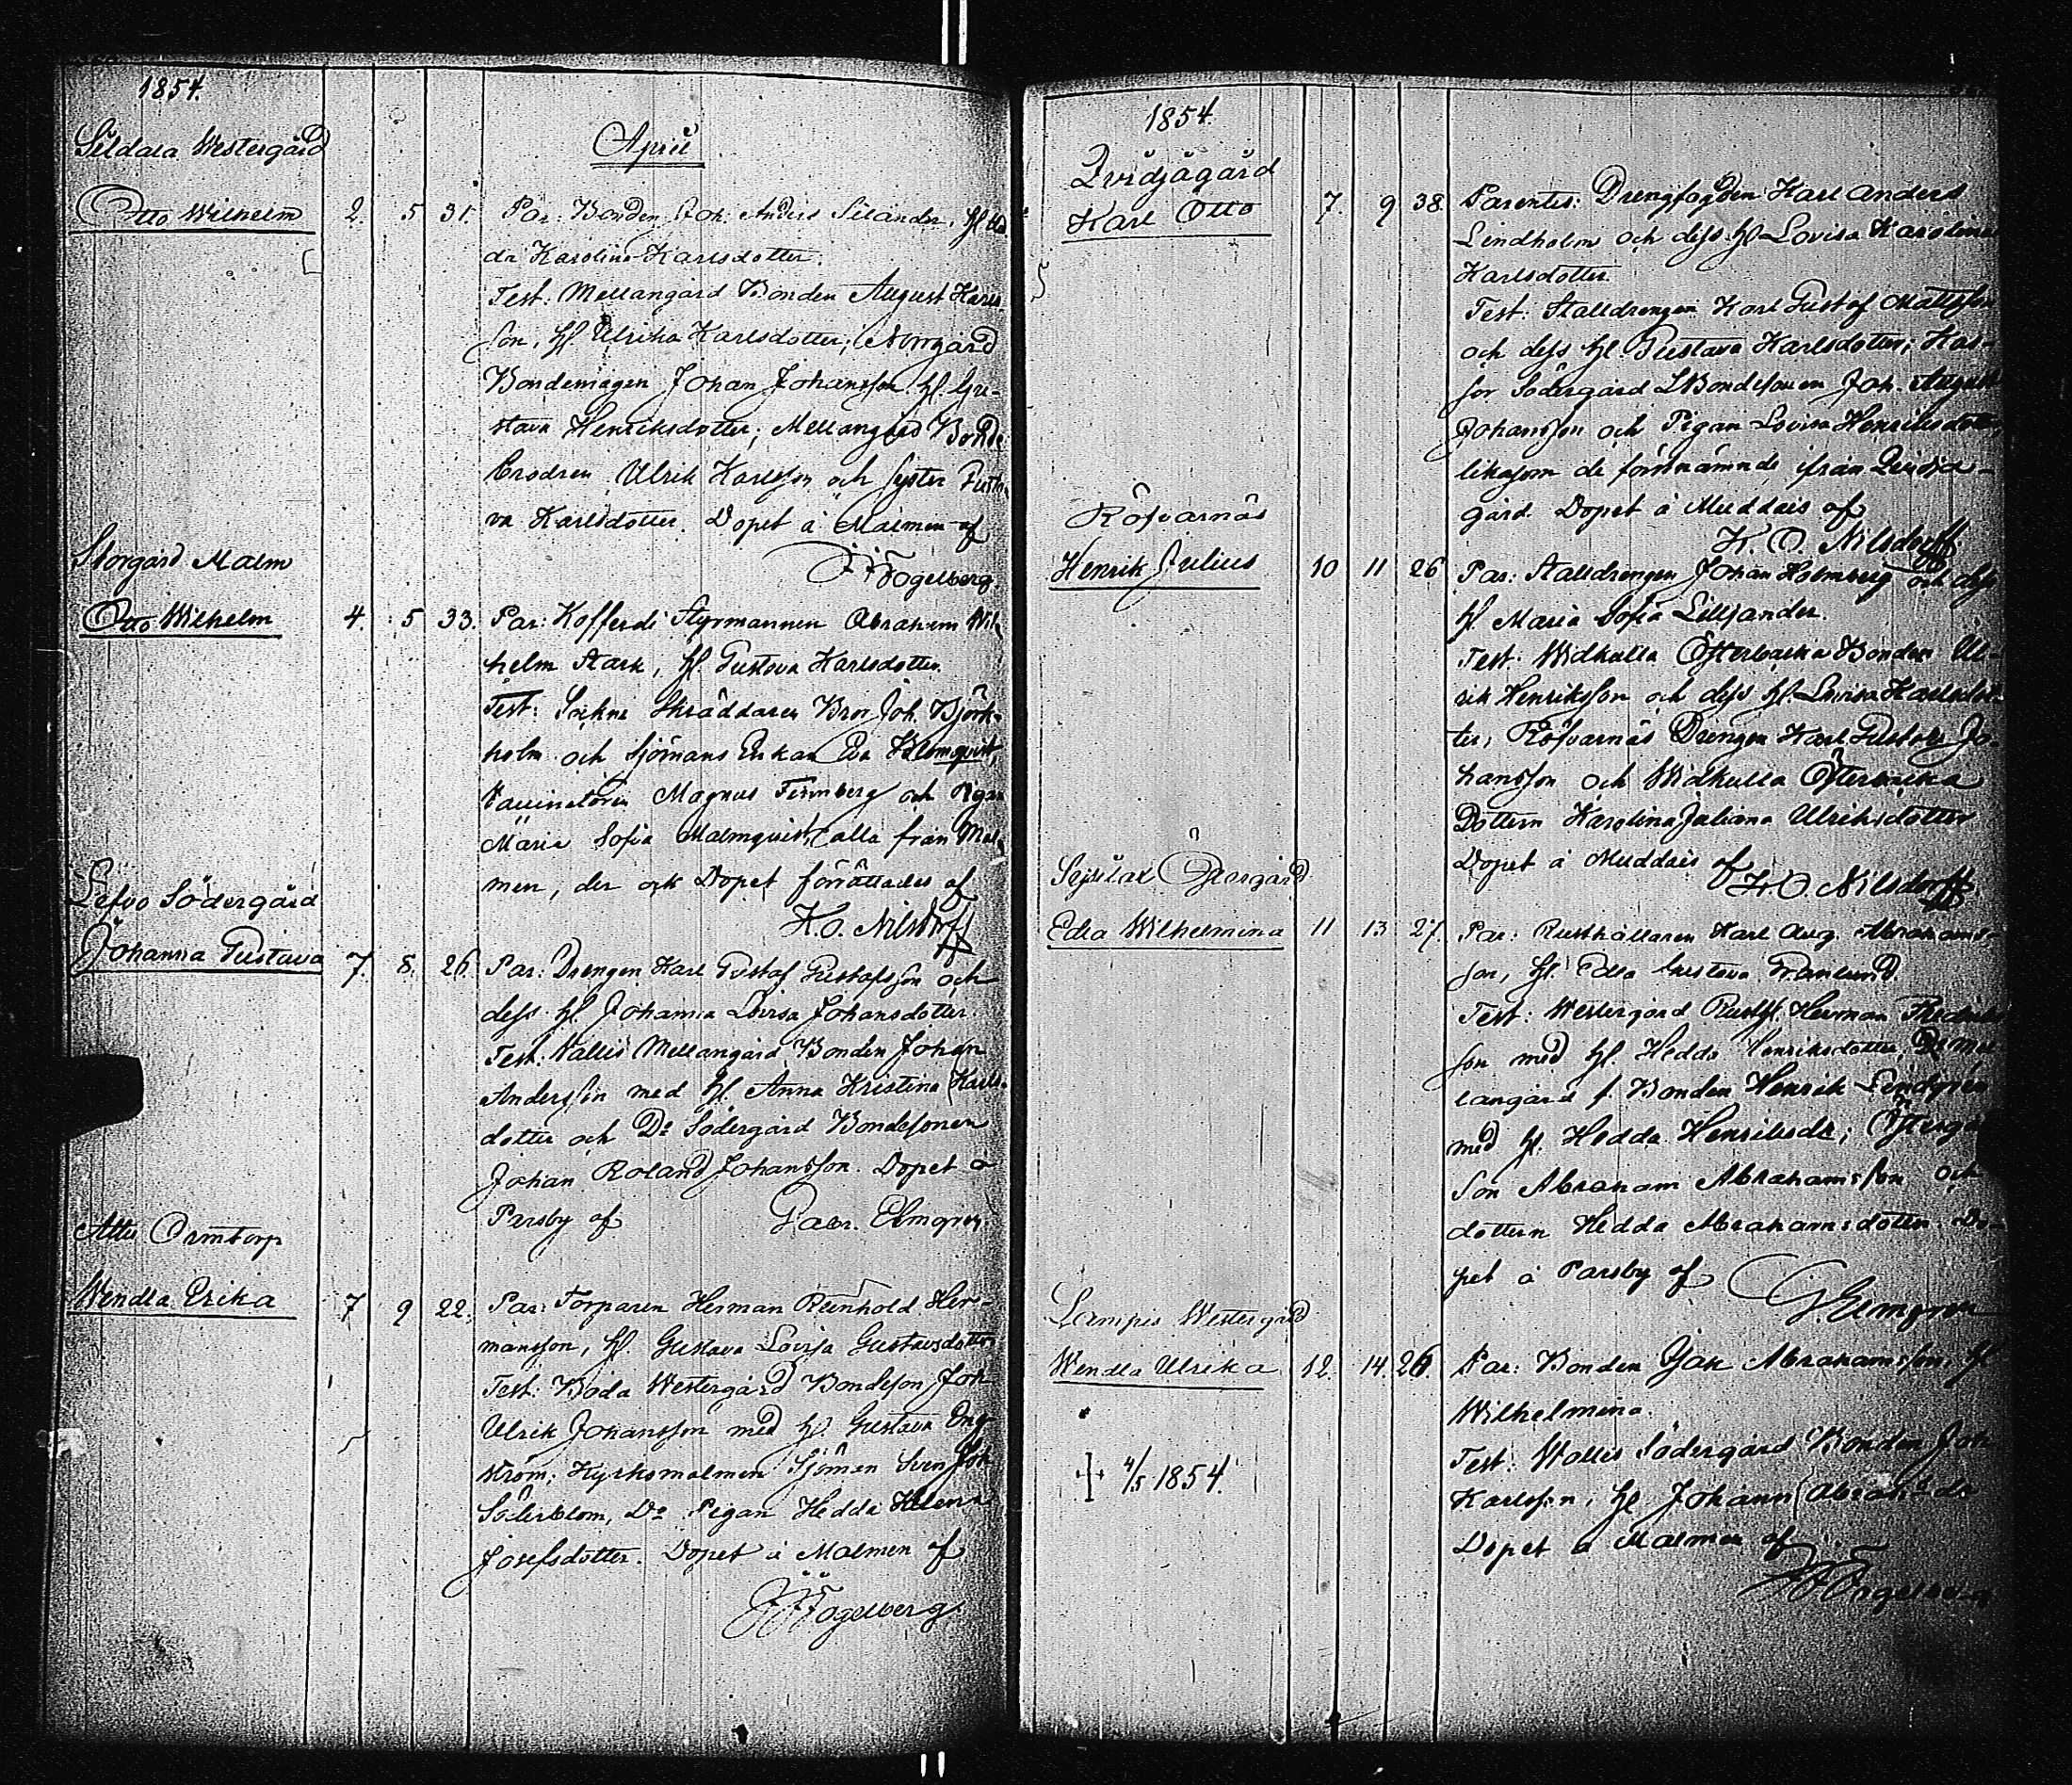 1854.
April
Sildala Westergård
Otto Wilhelm 2. 5 31. Par: Bonden Joh. Anders Silander, hu
da Karolina Karlsdotter.
Test: Mellangård Bonden August Karls
son, hu Ulrika Karlsdotter; Norrgård
Bondemagen Johan Johansson hu. Gu-
stava Henriksdotter; Mellangård Bonde
brodren Ulrik Karlsson och syster Gusta
va Karlsdotter. Dopet å Malmen af
Fogelberg
Storgård Malm
Otto Wilhelm 4. 5 33. Par: Kofferdi Styrmannen Abraham Wil
helm Stark, hu Gustava Karlsdotter.
Test: Sockne Skräddaren Bror Joh. Björk-
holm och Sjömans Enkan Eva Holmqvist,
Vaccinatoren Magnus Fernberg och Pigan
Maria Sofia Malmqvist, alla från Mal
men, der ock Dopet förrättades af
K. O. Nilsdorff
Lefvo Södergård
Johanna Gustava 7. 8. 26. Par: Drengen Karl Gustaf Gustafsson och
dess hu Johanna Lovisa Johansdotter.
Test: Vallis Mellangård Bonden Johan
Andersson med hu Anna Kristina Karls
dotter och Do Södergård Bondesonen
Johan Roland Johansson. Dopet å
Parsby af Gabr. Elmgren
Attu Ormtorp
Wendla Erika 7 9 22. Par: Torparen Herman Reinhold Her-
mansson, hu. Gustava Lovisa Gustavsdotter
Test: Böda Westergård Bondeson Joh
Ulrik Johansson med hu Gustava Eng
ström; Kyrkomalmen Sjöman Sven Joh
Söderblom, Do Pigan Hedda Helena
Josefsdotter. Dopet å Malmen af
Fogelberg
1854.
Qvidjägård
Karl Otto 7. 9 38. Parentes: Drengfogden Karl Anders
Lindholm och dess hu Lovisa Karolina
Karlsdotter.
Test: Stalldrengen Karl Gustaf Mattsson
och dess hu. Gustava Karlsdotter; Kas-
kor Södergård Bondesonen Joh. August
Johansson och Pigan Lovisa Henriksdotter,
likasom de förstnämnde ifrån Qvidja-
gård. Dopet å Muddais af
K. O. Nilsdorff
Röfvarnäs
Henrik Julius 10 11 26 Par: Stalldrengen Johan Holmberg och dess
hu Maria Sofia Lilljander.
Test. Widkulla Österbacka Bonden Ul-
rik Henriksson och dess hu Lovisa Karlsdot-
ter, Röfvarnäs Drengen Karl Gustaf Jo-
hansson och Widkulla Österbacka
Dottern Karolina Juliana Ulriksdotter
Dopet å Muddais af
K. O. Nilsdorff
Östergård
Edla Wilhelmina 11 13 27. Par: Rusthållaren Karl Aug. Abrahams-
son, hu Edla Gustava Granlund
Test: Westergård Rusth. Herman Fredriks
son med hu Hedda Henriksdotter, Do Mel
langård f. Bonden Henrik Lindgren
med hu Hedda Henriksdr; Östergård
Son Abraham Abrahamsson och
dottern Hedda Abrahamsdotter. Do-
pet å Parsby af
G. Elmgren
Lampis Westergård
Wendla Ulrika 12. 14. 26. Par: Bonden Isak Abrahamsson, hu
Wilhelmina.
Test: Wallis Södergård Bonden Joh
Karlsson, hu Johanna Abrahsdr
Dopet å Malmen af
Fogelberg
4/5 1854.